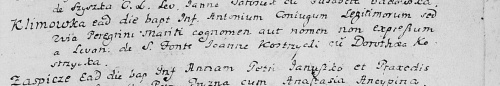 de Ryszka C. L. Lev. Janne
Klimowka ead die bapt Inf. Antonium Coniugum Legitimorum sed
via Peregrini Mariti cognomen aut nomen non expressum
a Levan. de S. Fonte Joanne Kostrzycki cu Dorothea Ko-
strzycka.
Zaspicze Ead die bap Inf Annam Petri Januszko et Praxedis
cum Anastasia